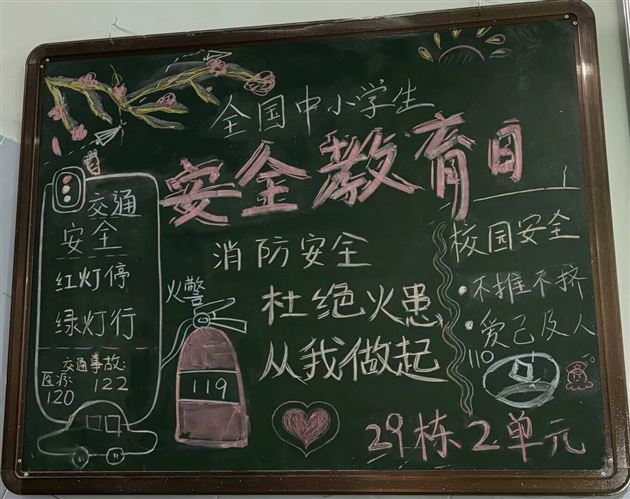 全国中小学生
安全教育日
交通
安全
红灯停
绿灯行
交通事故:
122
医疗
120
消防安全
火警
119
杜绝火患
从我做起
校园安全
·不推不挤
·爱己及人
110
29栋2单元